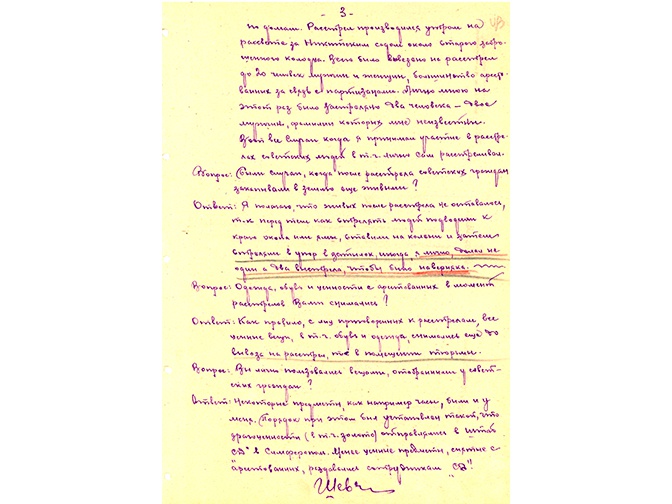 - 3 -
по домам. Расстрел производился утром на
рассвете за Никитским садом около старого забро-
шенного колодца. Всего было выведено на расстрел
до 20 человек мужчин и женщин, большинство аресто-
ванных за связь с партизанами. Лично мною на
этот раз было застрелено два человека – двое
мужчин, фамилии которых мне неизвестны.
Это все случаи когда я принимал участие в расстре-
лах советских людей в т.ч. лично сам расстреливал.
Вопрос: Были случаи, когда после расстрела советских граждан
закапывали в землю еще живыми?
Ответ: Я полагаю, что живых после расстрела не оставалось,
т.к перед тем как стрелять людей подводили к
краю ямы, ставили на колени и затем
стреляли в упор в затылок, иногда я лично, делал не
один а два выстрела, чтобы было наверняка.
Вопрос: Одежда, обувь и ценности с арестованных в момент
расстрелов Вами снимались?
Ответ: Как правило, с лиц приговоренных к расстрелам, все
ценные вещи, в т.ч. обувь и одежда, снимались ещё до
вывоза на расстрел, т.е в помещении тюрьмы.
Вопрос: Вы лично пользовались вещами, отобранными у совет-
ских граждан?
Ответ: Некоторые предметы, как например часы, были и у
меня. Порядок при этом был установлен такой, что
драгоценности (в т.ч. золото) отправлялись в штаб
СД в Симферополь. Менее ценные предметы, снятые с
арестованных, раздавались сотрудникам "СД"